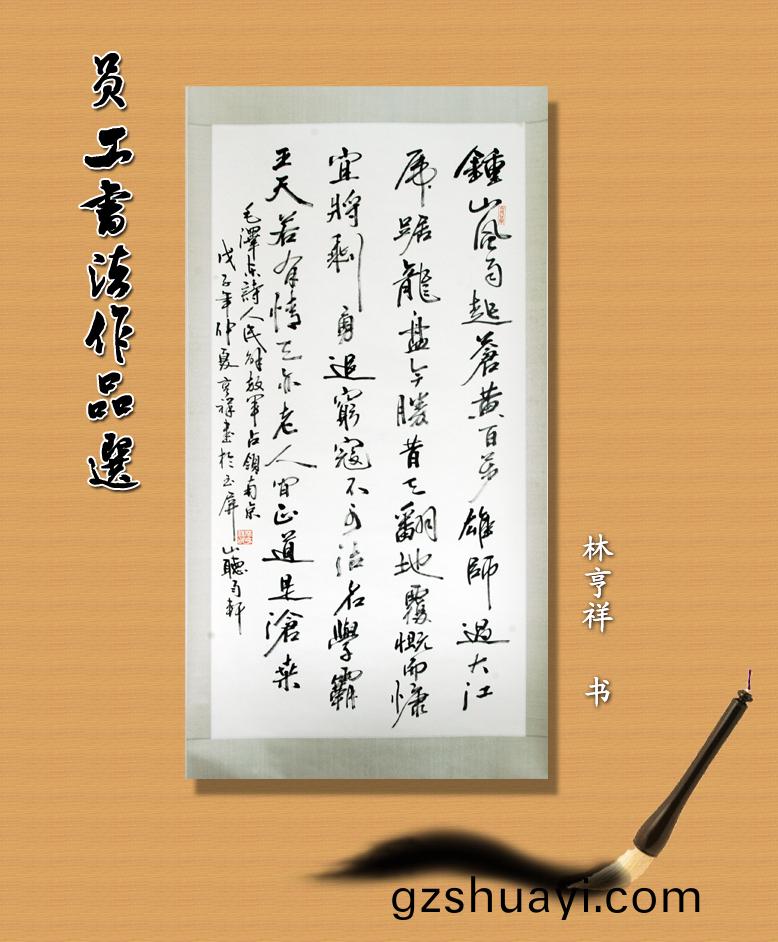 员工書法作品選
鍾山風雨起蒼黄百萬雄師過大江
虎踞龍盤今勝昔天翻地覆慨而慷
宜將剩勇追窮寇不可沽名學霸
王天若有情天亦老人间正道是滄桑
毛澤东詩人民解放軍占領南京
戊子年仲夏亨祥書於玉屏山聽雨軒
林亨祥 书
gzshuayi.com